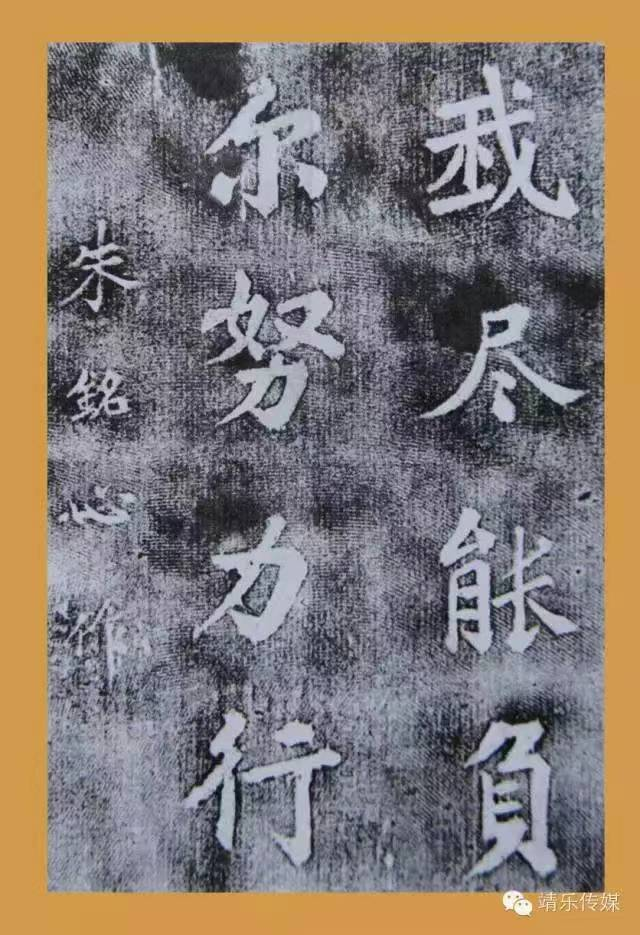 我尽能負
尔努力行
朱銘心作
靖乐传媒